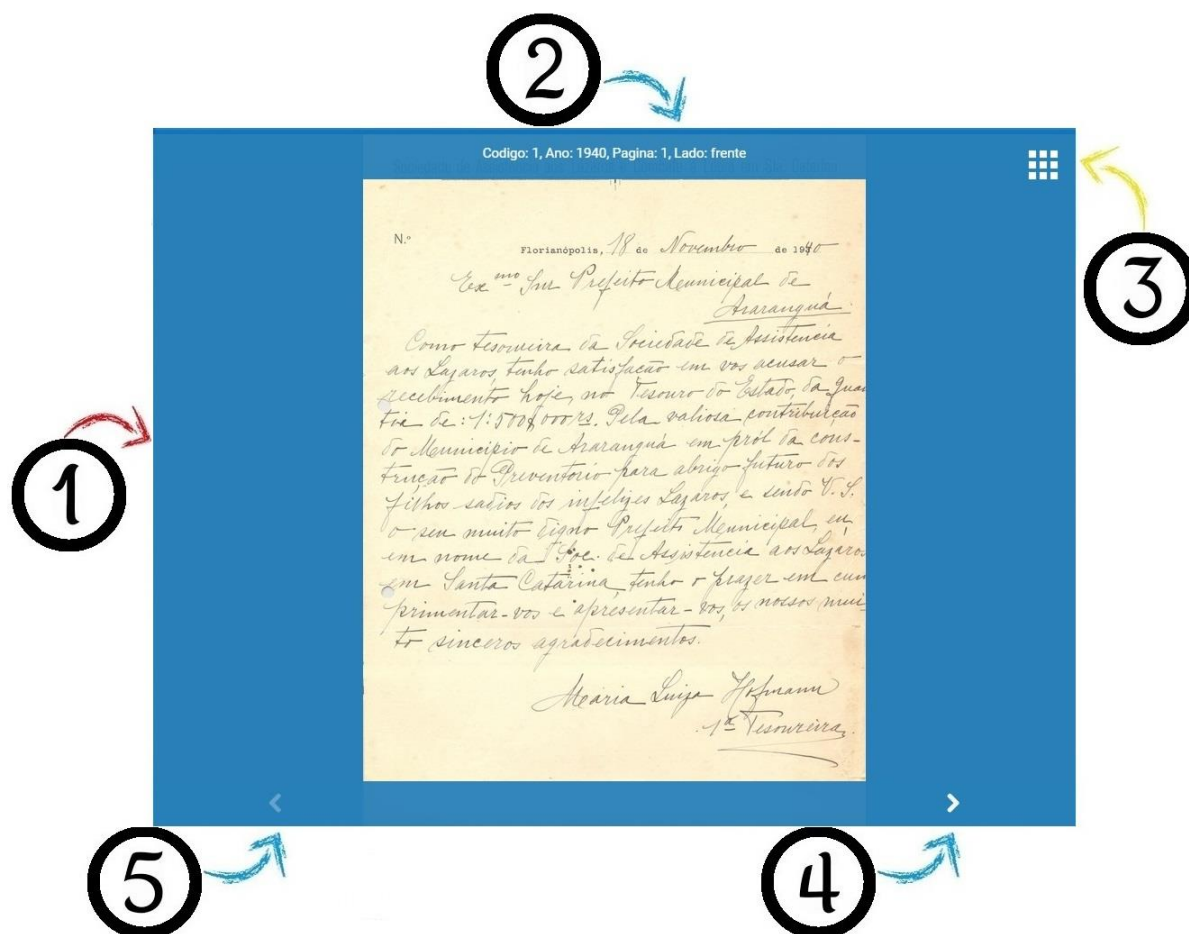 2
Codigo: 1, Ano: 1940, Pagina: 1, Lado: frente
3
N.º
Florianópolis, 18 de Novembro de 1940
Exmo Snr Prefeito Municipal de
Araranguá.
Como tesoureira da Sociedade de Assistencia
aos Lazaros, tenho satisfação em vos acusar o
recebimento hoje, no Tesouro do Estado, da quan
tia de: 1:500$000 rs. Pela valiosa contribuição
do Municipio de Araranguá em pról da cons-
trução do Preventorio para abrigo futuro dos
filhos sadios dos infelizes Lazaros, e sendo V. S.
o seu muito digno Prefeito Municipal, eu
em nome da Soc. de Assistencia aos Lazaros
em Santa Catarina, tenho o prazer em cum
primentar-vos e apresentar-vos, os nossos mui-
to sinceros agradecimentos.
Maria Luiza Hofmann
1ª Tesoureira.
1
5
4